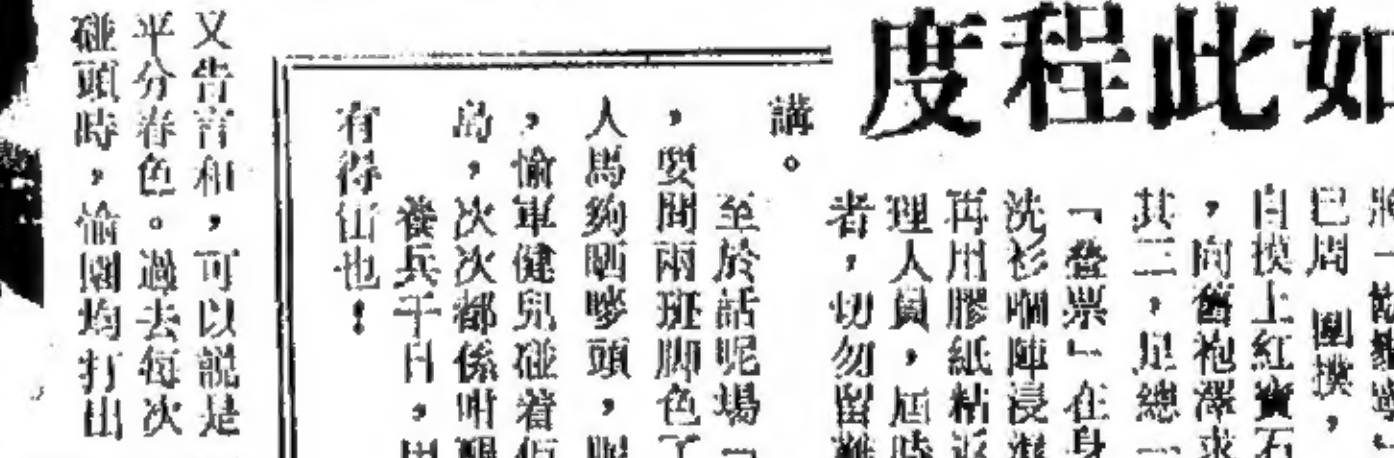 如此程度
將一
已周圍摸，
自摸上紅寶石
，向舊袍澤求
其三，是總一
「登票」在身
洗衫嗰陣浸濕
再用膠紙粘返
理人員，屆時
者，切勿留難
講。
至於話呢場「
，要問兩班脚色了
人馬夠晒嘜頭，
，愉軍健兒碰着佢
島，次次都係咁醒
養兵千日，用
有得出也！
又告言和，可以說是
平分春色。過去每次
碰頭時，愉園均打出